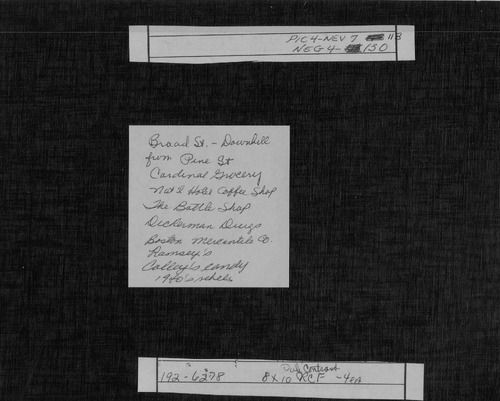 PIC 4-NEV 7 118
NEG 4- 150
Broad St. - Downhill
from Pine St
Cardinal Grocery
Nat'l Hotel Coffee Shop
The Bottle Shop
Dickerman Drugs
Boston Mercantile Co.
Ramsey's
Colley's candy
1940's vehicles
192-6278 8x10 RCF -4ea
Contrast